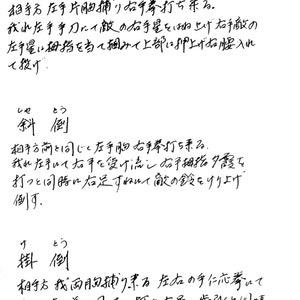 相手方左手片胸捕り右手拳打ち来る。
我れ左手手刀にて敵の右手星をはね上げ右手敵の
左手星に拇指を当て掴みて上部に押上げ右腰入れ
て投げ
しゃ とう
斜 倒
相手方前と同じく左手胸右手拳打ち来る。
我れ左手にて右手を受け流し右手拇指夕霞を
打つと同時に右足すねにて敵の鈴をけり上げ
倒す。
け とう
掛 倒
相手方我両胸捕り来る 左右の手に応拳にて